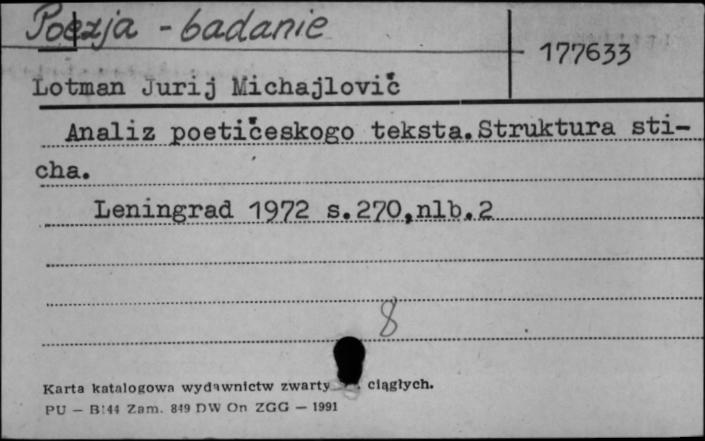 Poezja - badanie
177633
Lotman Jurij Michajlovič
Analiz poetičeskogo teksta.Struktura sti-
cha.
Leningrad 1972 s.270,nlb.2
8
Karta katalogowa wydawnictw zwarty ciągłych.
PU — B!44 Zam. 849 DW On ZGG — 1991